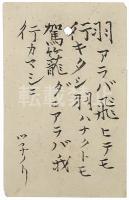 羽アラバ飛ヒテモ
行キタシ羽ハナクトモ
駕籠ダニアラバ我
行カマシヲ
ツネノリ